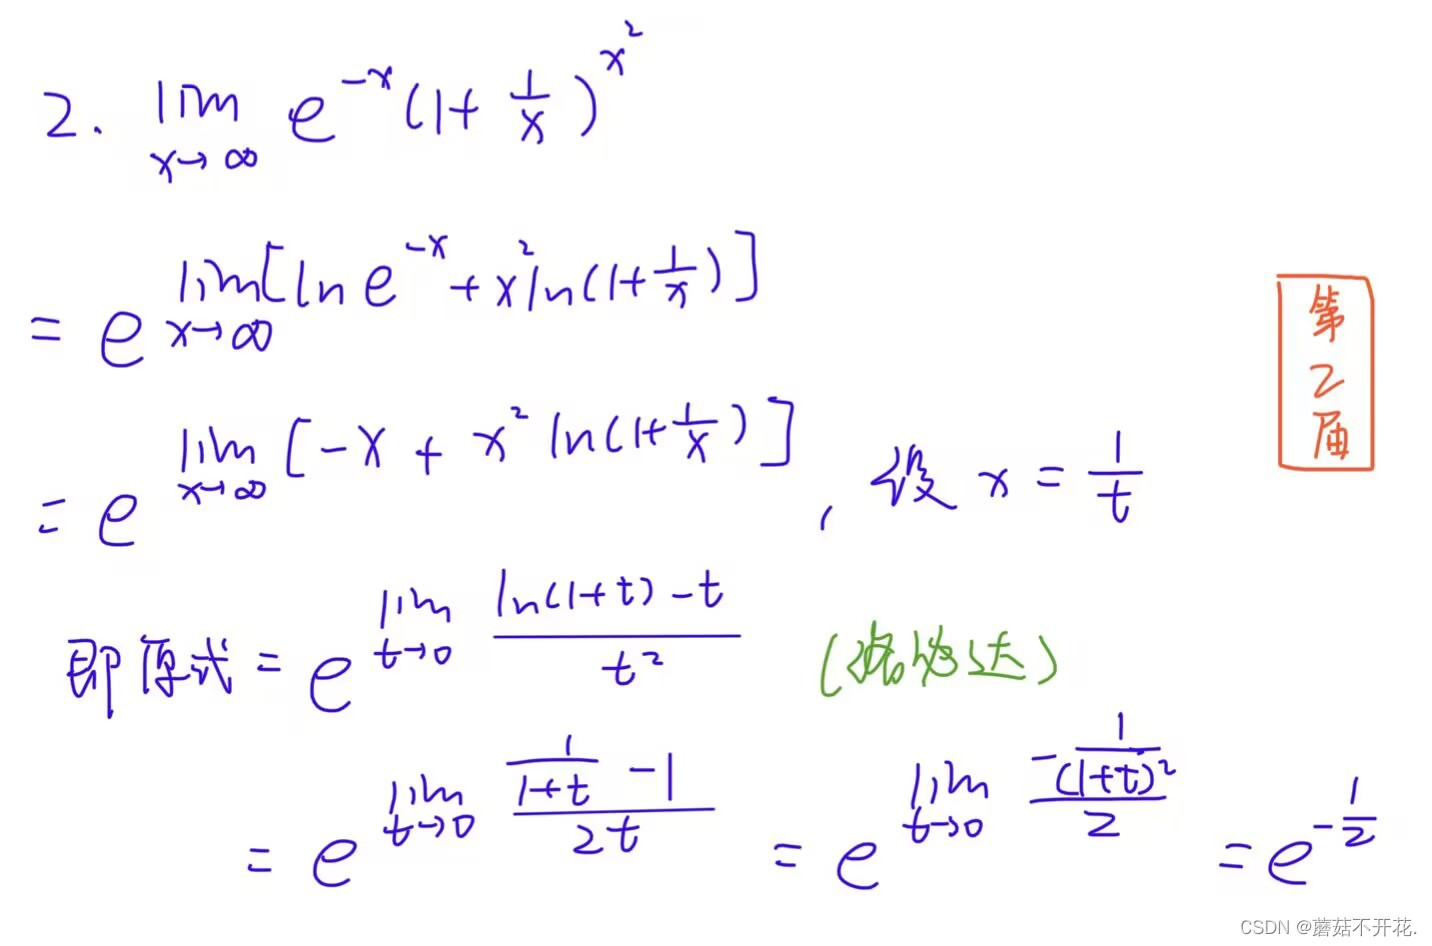 2. lim_{x→∞} e^{-x}(1+\frac{1}{x})^{x^2}
= e^{lim_{x→∞}[ln e^{-x} + x^2 ln(1+\frac{1}{x})]}
= e^{lim_{x→∞}[-x + x^2 ln(1+\frac{1}{x})]} , 设 x = \frac{1}{t}
第2届
即原式 = e^{lim_{t→0} \frac{ln(1+t)-t}{t^2}} (洛必达)
= e^{lim_{t→0} \frac{\frac{1}{1+t}-1}{2t}} = e^{lim_{t→0} \frac{-\frac{1}{(1+t)^2}}{2}} = e^{-\frac{1}{2}}
CSDN @蘑菇不开花.